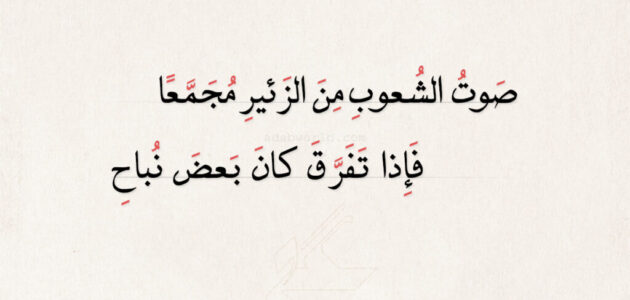 صَوتُ الشُعوبِ مِنَ الزَئيرِ مُجَمَّعًا
adabworld.com
فَإِذا تَفَرَّقَ كانَ بَعضَ نُباحِ